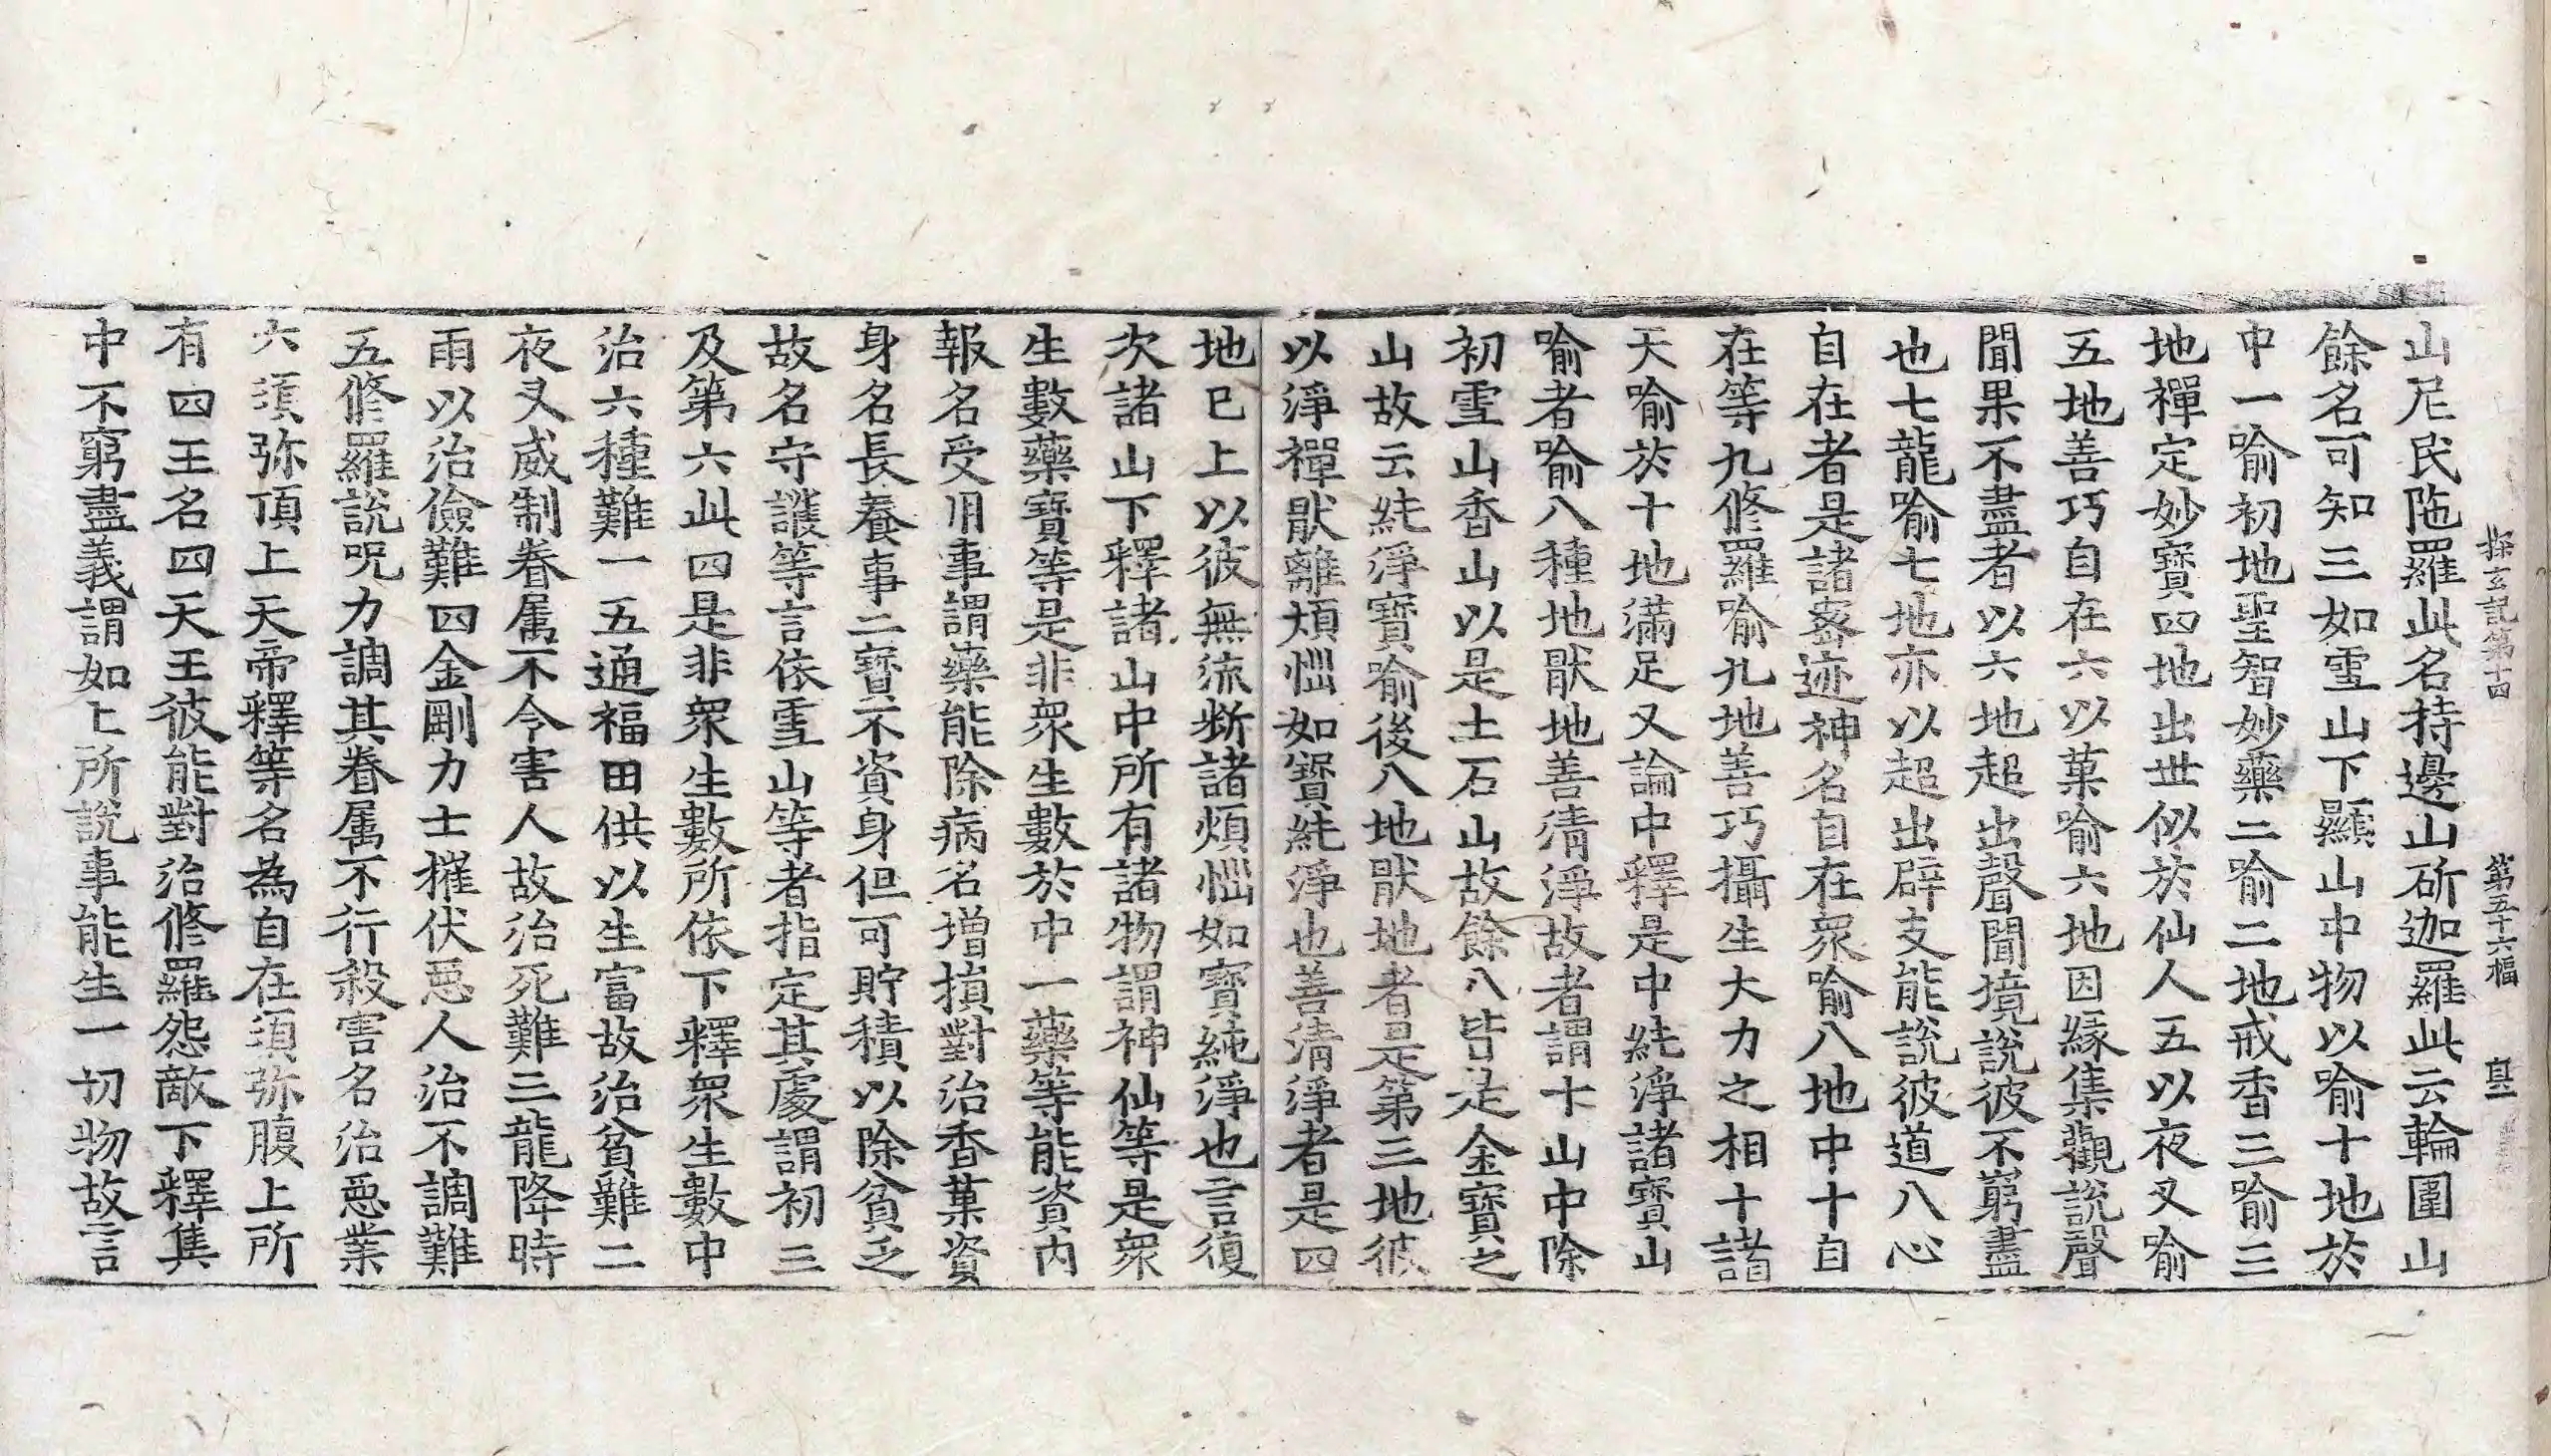 探玄記第十四 第五十六幅
山尼民陁羅此名持邊山斫迦羅此云輪圍山
餘名可知三如雪山下顯山中物以喻十地於
中一喻初地聖智妙藥二喻二地戒香三喻三
地禪定妙寶四地出世似於仙人五以夜叉喻
五地善巧自在六以菓喻六地因緣集觀說聲
聞果不盡者以六地超出聲聞境說彼不窮盡
也七龍喻七地亦以超出辟支能說彼道八心
自在者是諸宻迹神名自在衆喻八地中十自
在等九修羅喻九地善巧攝生大力之相十諸
天喻於十地滿足又論中釋是中純淨諸寶山
喻者喻八種地猒地善清淨故者謂十山中除
初雪山香山以是土石山故餘八皆是金寶之
山故云純淨寶喻後八地猒地者是第三地彼
以淨禪猒離煩惱如寶純淨也善清淨者是四
地已上以彼無流斷諸煩惱如寶純淨也言復
次諸山下釋諸山中所有諸物謂神仙等是衆
生數藥寶等是非衆生數於中一藥等能資内
報名受用事謂藥能除病名增損對治香菓資
身名長養事二寶不資身但可貯積以除貧乏
故名守護等言依雪山等者指定其處謂初三
及第六此四是非衆生數所依下釋衆生數中
治六種難一五通福田供以生富故治貧難二
夜叉威制眷属不令害人故治死難三龍降時
雨以治儉難四金剛力士摧伏惡人治不調難
五修羅說呪力調其眷属不行殺害名治惡業
六須弥頂上天帝釋等名為自在須弥腹上所
有四王名四天王彼能對治修羅怨敵下釋集
中不窮盡義謂如上所說事能生一切物故言